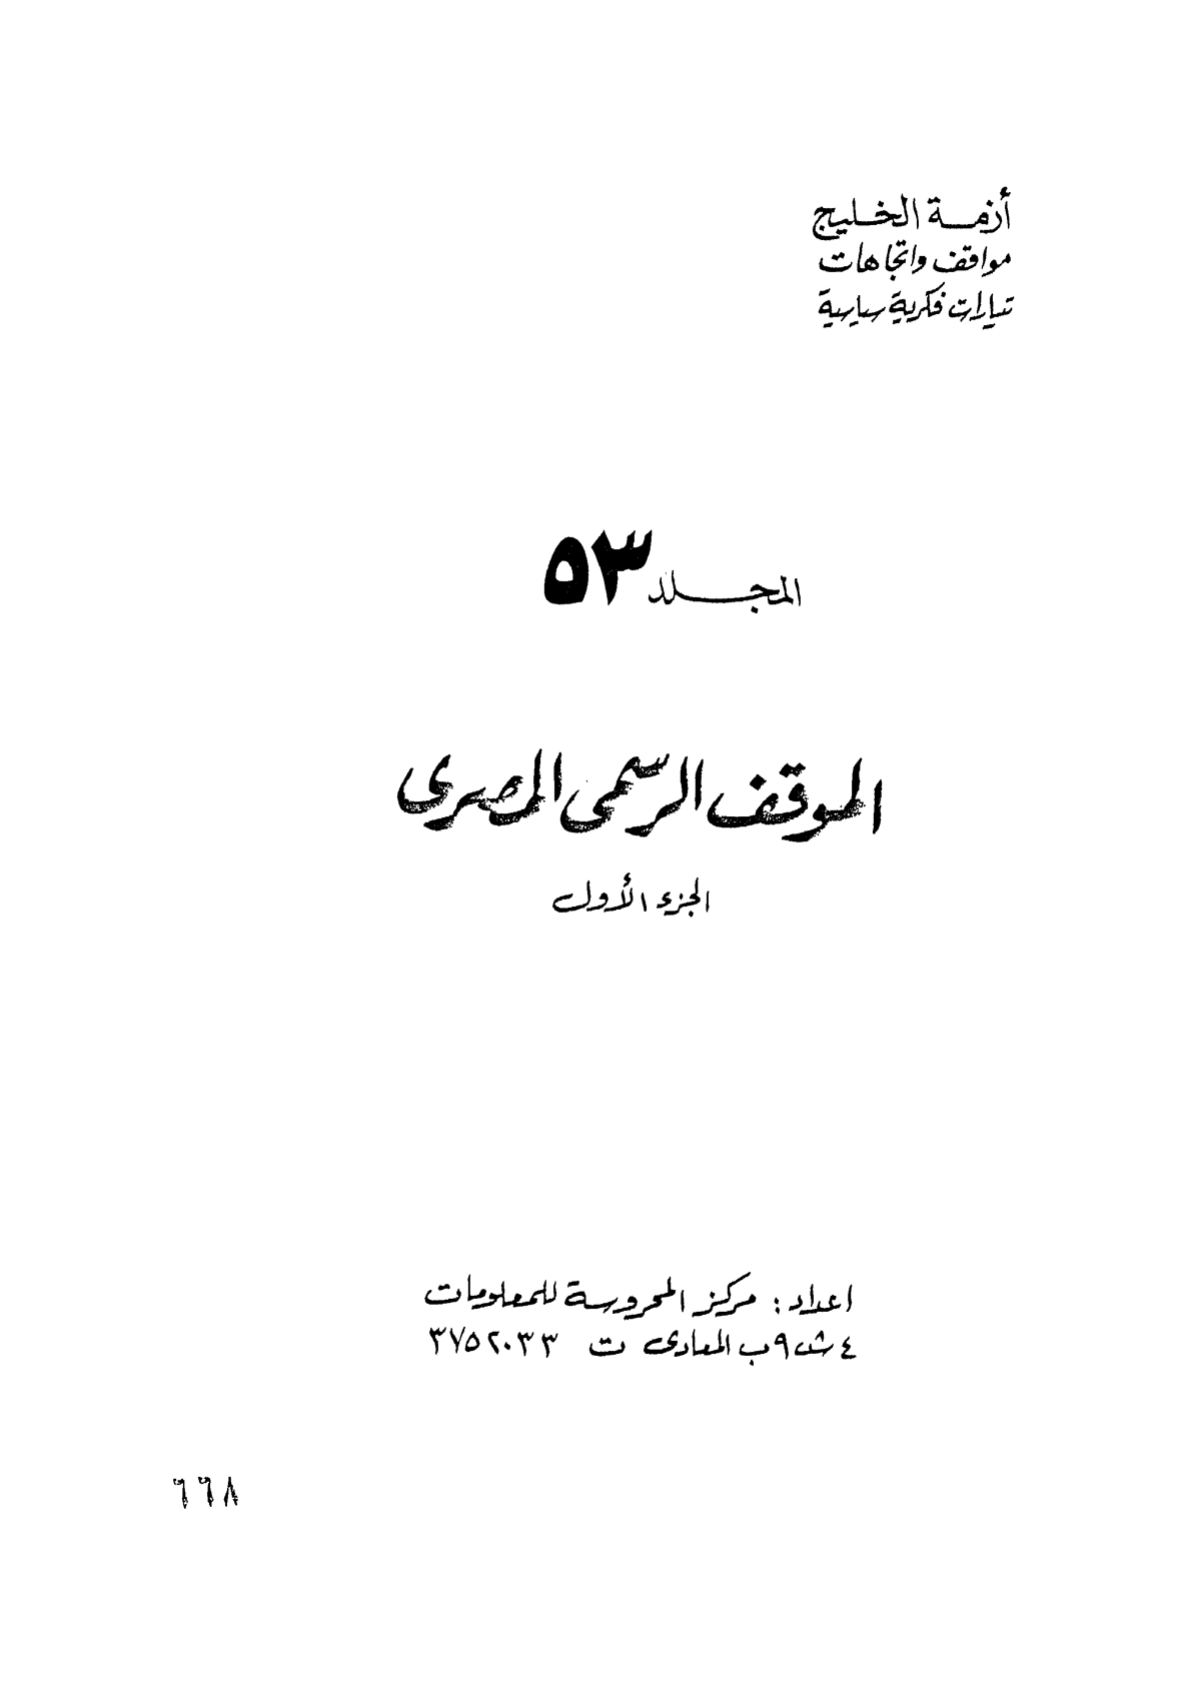 أزمة الخليج
مواقف واتجاهات
تيارات فكرية سياسية
المجلد ٥٣
الموقف الرسمى المصرى
الجزء الأول
اعداد : مركز المحروسة للمعلومات
٤ ش ٩ب المعادى ت ٣٧٥٢٠٣٣
٦٦٨